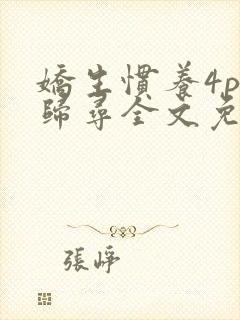 嬌生慣養4p
歸尋全文免
張崢